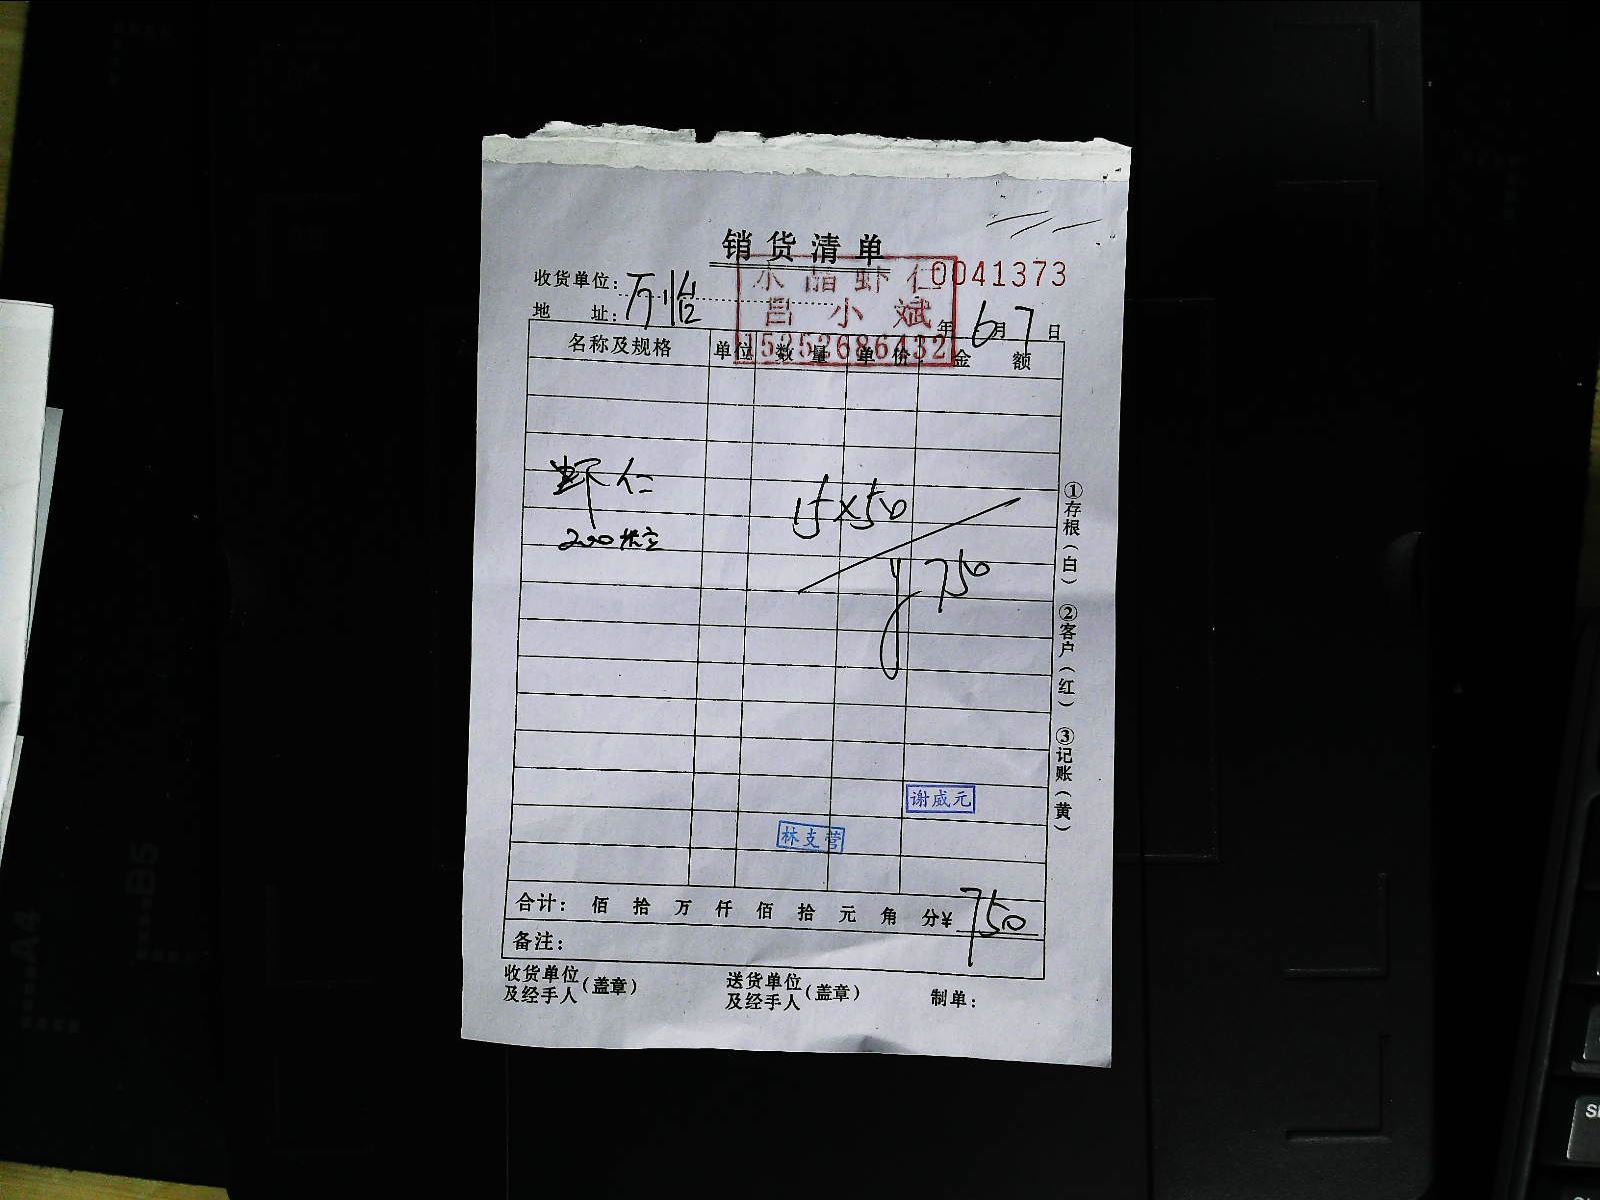 销货清单
水晶虾仁
吕小斌
15252686432
0041373
收货单位：万怡
地 址：
年 6月 7日
名称及规格 单位 数量 单价 金额
虾仁 15×50
200
¥750
谢威元
林支营
合计： 佰 拾 万 仟 佰 拾 元 角 分¥ 750
备注：
收货单位及经手人（盖章） 送货单位及经手人（盖章） 制单：
①存根（白） ②客户（红） ③记账（黄）
A4
B5